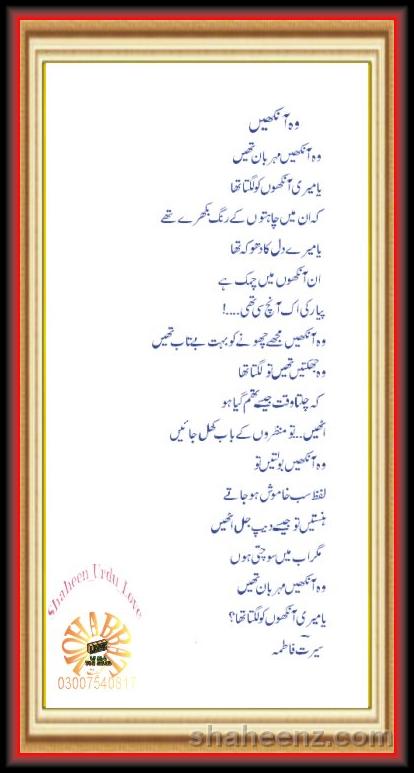 وہ آنکھیں
وہ آنکھیں مہربان تھیں
یا میری آنکھوں کو لگتا تھا
کہ ان میں چاہتوں کے رنگ بکھرے تھے
یا میرے دل کا دھوکہ تھا
ان آنکھوں میں چمک ہے
پیار کی اک آنچ سی تھی....!
وہ آنکھیں مجھے چھونے کو بہت بے تاب تھیں
وہ جھکتیں تھیں تو لگتا تھا
کہ چلتا وقت جیسے تھم گیا ہو
اٹھیں...تو منظروں کے باب کھل جائیں
وہ آنکھیں بولتیں تو
لفظ سب خاموش ہو جاتے
ہنستیں تو جیسے دیپ جل اٹھیں
مگر اب میں سوچتی ہوں
وہ آنکھیں مہربان تھیں
یا میری آنکھوں کو لگتا تھا؟
سیرت فاطمہ
Shaheen Urdu Love
03007540817
shaheenz.com